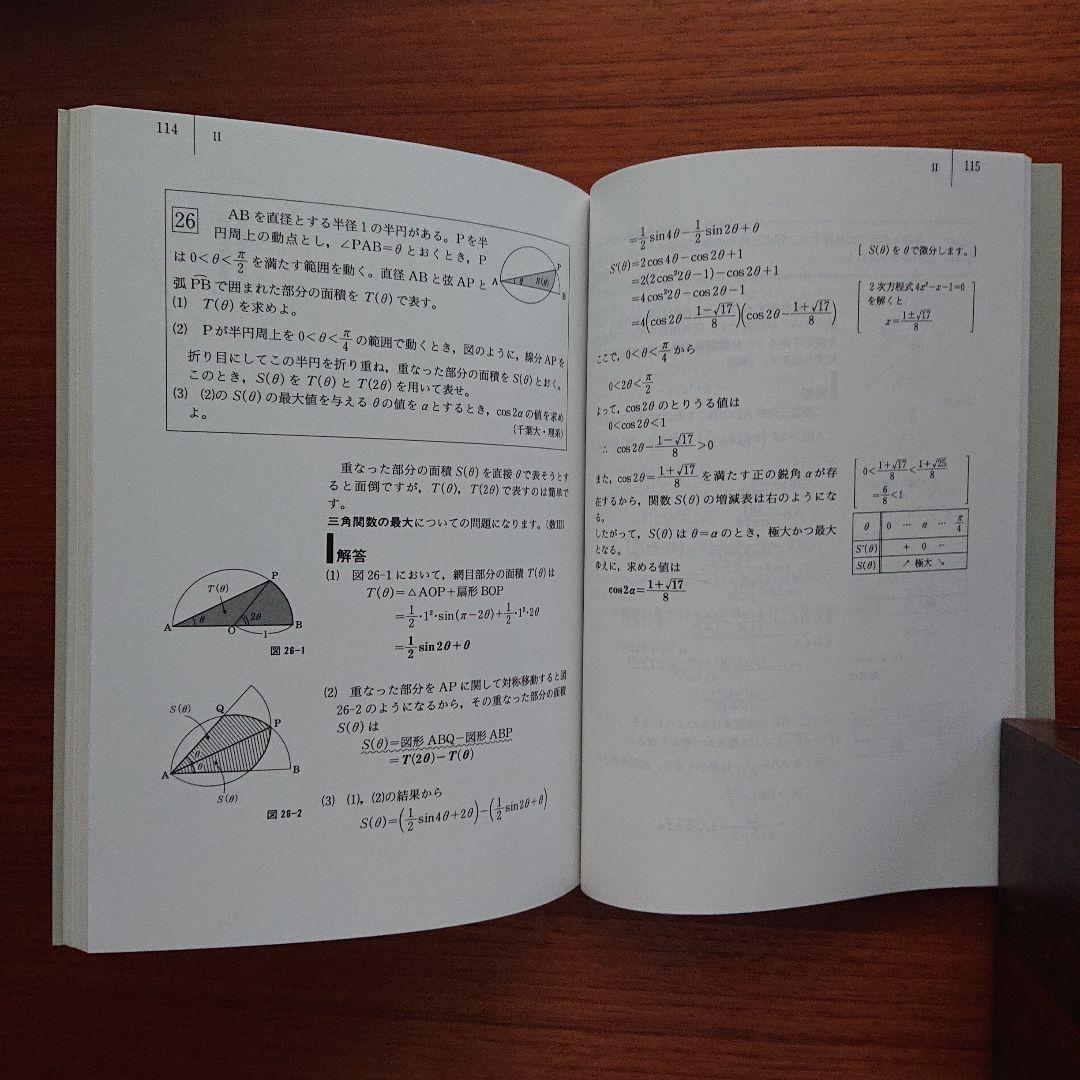 114 II
26 ABを直径とする半径1の半円がある。Pを半
円周上の動点とし，∠PAB=θとおくとき，P
は0<θ<π/2を満たす範囲を動く。直径ABと弦APと
弧PBで囲まれた部分の面積をT(θ)で表す。
(1) T(θ)を求めよ。
(2) Pが半円周上を0<θ<π/4の範囲で動くとき，図のように，線分APを
折り目にしてこの半円を折り重ね，重なった部分の面積をS(θ)とおく。
このとき，S(θ)をT(θ)とT(2θ)を用いて表せ。
(3) (2)のS(θ)の最大値を与えるθの値をαとするとき，cos2αの値を求め
よ。
(千葉大・理系)
A θ S(θ) P B
重なった部分の面積S(θ)を直接θで表そうとす
ると面倒ですが，T(θ)，T(2θ)で表すのは簡単で
す。
三角関数の最大についての問題になります。(数III)
解答
(1) 図26-1において，網目部分の面積T(θ)は
T(θ)=△AOP+扇形BOP
=1/2・1²・sin(π−2θ)+1/2・1²・2θ
=1/2 sin2θ+θ
T(θ) P
A θ O 2θ 1 B
図26-1
(2) 重なった部分をAPに関して対称移動すると図
26-2のようになるから，その重なった部分の面積
S(θ)は
S(θ)=図形ABQ−図形ABP
=T(2θ)−T(θ)
S(θ) Q P
θ θ
A B
S(θ)
図26-2
(3) (1)，(2)の結果から
S(θ)=(1/2 sin4θ+2θ)−(1/2 sin2θ+θ)
II 115
=1/2 sin4θ−1/2 sin2θ+θ
S'(θ)=2cos4θ−cos2θ+1
[ S(θ)をθで微分します。]
=2(2cos²2θ−1)−cos2θ+1
=4cos²2θ−cos2θ−1
=4(cos2θ−(1−√17)/8)(cos2θ−(1+√17)/8)
2次方程式4x²−x−1=0
を解くと
x=(1±√17)/8
ここで，0<θ<π/4から
0<2θ<π/2
よって，cos2θのとりうる値は
0<cos2θ<1
∴ cos2θ−(1−√17)/8>0
また，cos2θ=(1+√17)/8を満たす正の鋭角αが存
在するから，関数S(θ)の増減表は右のようにな
る。
0<(1+√17)/8<(1+√25)/8
=6/8<1
したがって，S(θ)はθ=αのとき，極大かつ最大
となる。
ゆえに，求める値は
cos2α=(1+√17)/8
θ 0 … α … π/4
S'(θ) + 0 −
S(θ) ↗ 極大 ↘